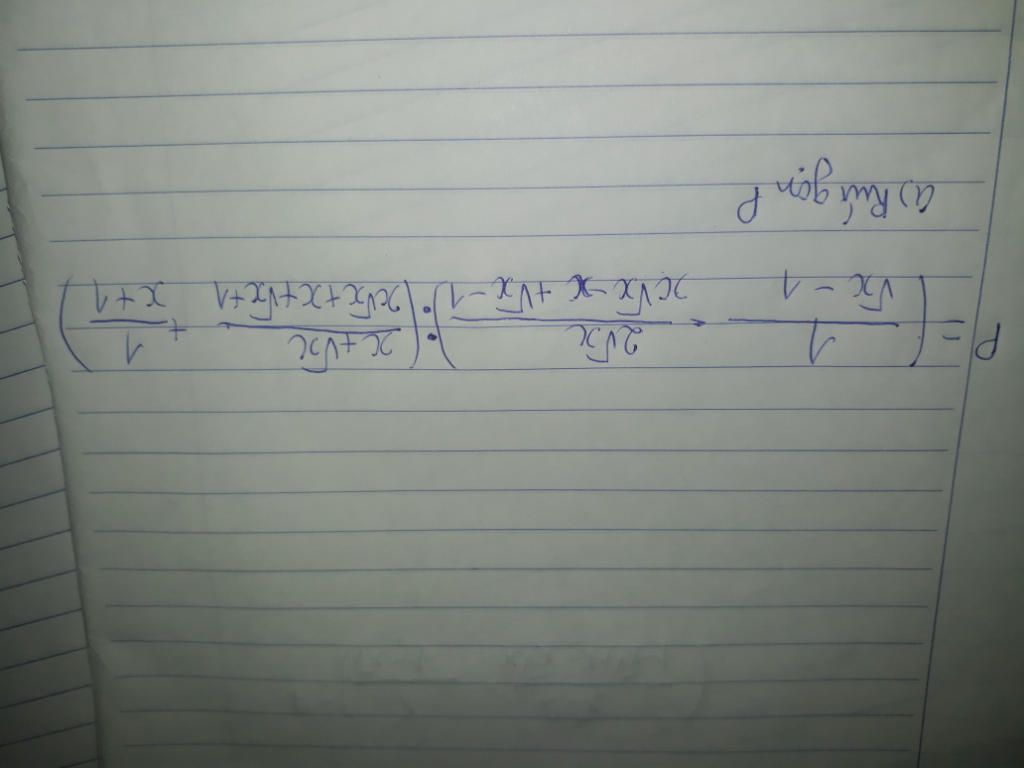 P = ( 1/(√x - 1) - 2√x/(x√x - x + √x - 1) ) : ( (x + √x)/(x√x + x + √x + 1) + 1/(x + 1) )
a) Rút gọn P